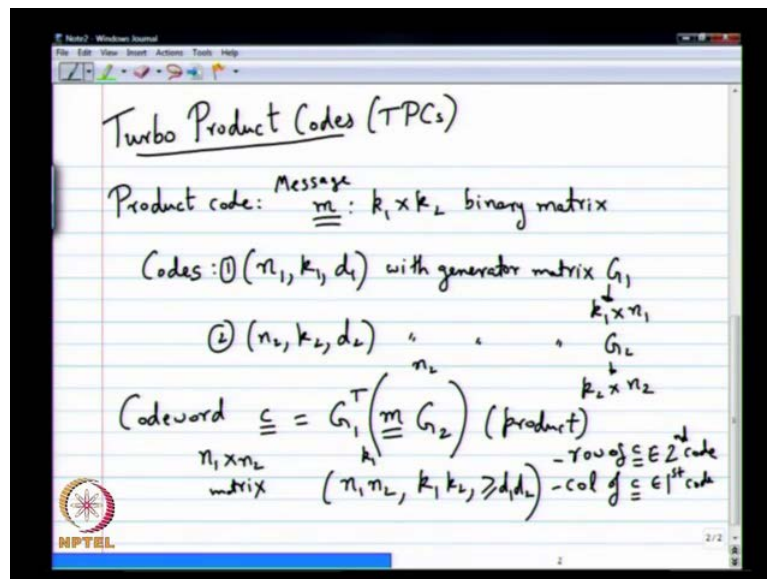 Note2 - Windows Journal
File Edit View Insert Actions Tools Help
Turbo Product Codes (TPCs)
Message
Product code: m : k₁ × k₂ binary matrix
Codes : ① (n₁, k₁, d₁) with generator matrix G₁
k₁ × n₁
② (n₂, k₂, d₂) " " " G₂
n₂
k₂ × n₂
Codeword c = G₁ᵀ (m G₂) (product)
k₁
- row of c ∈ 2nd code
n₁ × n₂
matrix (n₁n₂, k₁k₂, ≥d₁d₂) - col of c ∈ 1st code
NPTEL
2/2
2